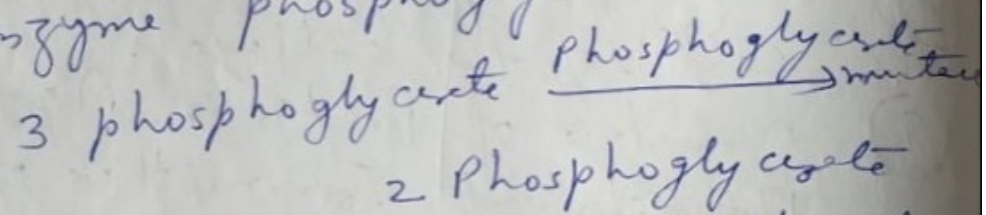 enzyme phosphogly
3 phosphoglycerate phosphoglycerate mutase
2 Phosphoglycerate